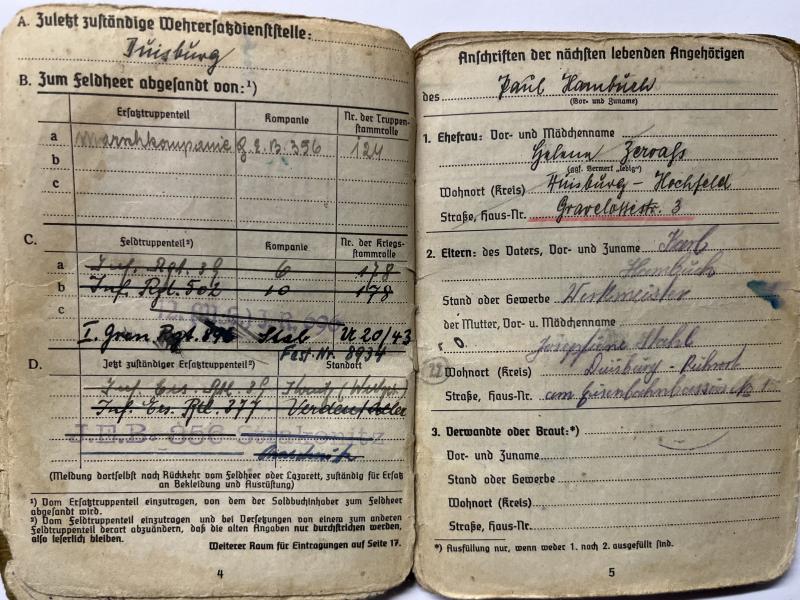 A. Zuletzt zuständige Wehrersatzdienststelle:
Duisburg
B. Zum Feldheer abgesandt von:¹)
Ersatztruppenteil
Kompanie
Nr. der Truppen-
stammrolle
a Marschkompanie G.E.B. 356 124
b
c
C. Feldtruppenteil²)
Kompanie
Nr. der Kriegs-
stammrolle
a Inf. Rgt. 39 6 178
b Inf. Rgt. 502 10 178
c
I. Gren. Rgt. 896 Stab U 20/43
Fest. Nr. 8934
D. Jetzt zuständiger Ersatztruppenteil²)
Standort
Inf. Ers. Btl. 39
Inf. Ers. Btl. 377 Verden/Aller
J.E.B. 356
(Meldung dortselbst nach Rückkehr vom Feldheer oder Lazarett, zuständig für Ersatz
an Bekleidung und Ausrüstung)
¹) Vom Ersatztruppenteil einzutragen, von dem der Soldbuchinhaber zum Feldheer
abgesandt wird.
²) Vom Feldtruppenteil einzutragen und bei Versetzungen von einem zum anderen
Feldtruppenteil derart abzuändern, daß die alten Angaben nur durchstrichen werden,
also leserlich bleiben.
Weiterer Raum für Eintragungen auf Seite 17.
4
Anschriften der nächsten lebenden Angehörigen
des Paul Hambuch
(Vor- und Zuname)
1. Ehefrau: Vor- und Mädchenname
Helene
(ggf. Vermerk „ledig")
Wohnort (Kreis) Duisburg - Hochfeld
Straße, Haus-Nr. Gravelottestr. 3
2. Eltern: des Vaters, Vor- und Zuname Karl
Hambuch
Stand oder Gewerbe Werkmeister
der Mutter, Vor- u. Mädchenname
Josephine Stahl
Wohnort (Kreis) Duisburg - Ruhrort
Straße, Haus-Nr. am Eisenbahnbassin No 1
3. Verwandte oder Braut:*)
Vor- und Zuname
Stand oder Gewerbe
Wohnort (Kreis)
Straße, Haus-Nr.
*) Ausfüllung nur, wenn weder 1. noch 2. ausgefüllt sind.
5